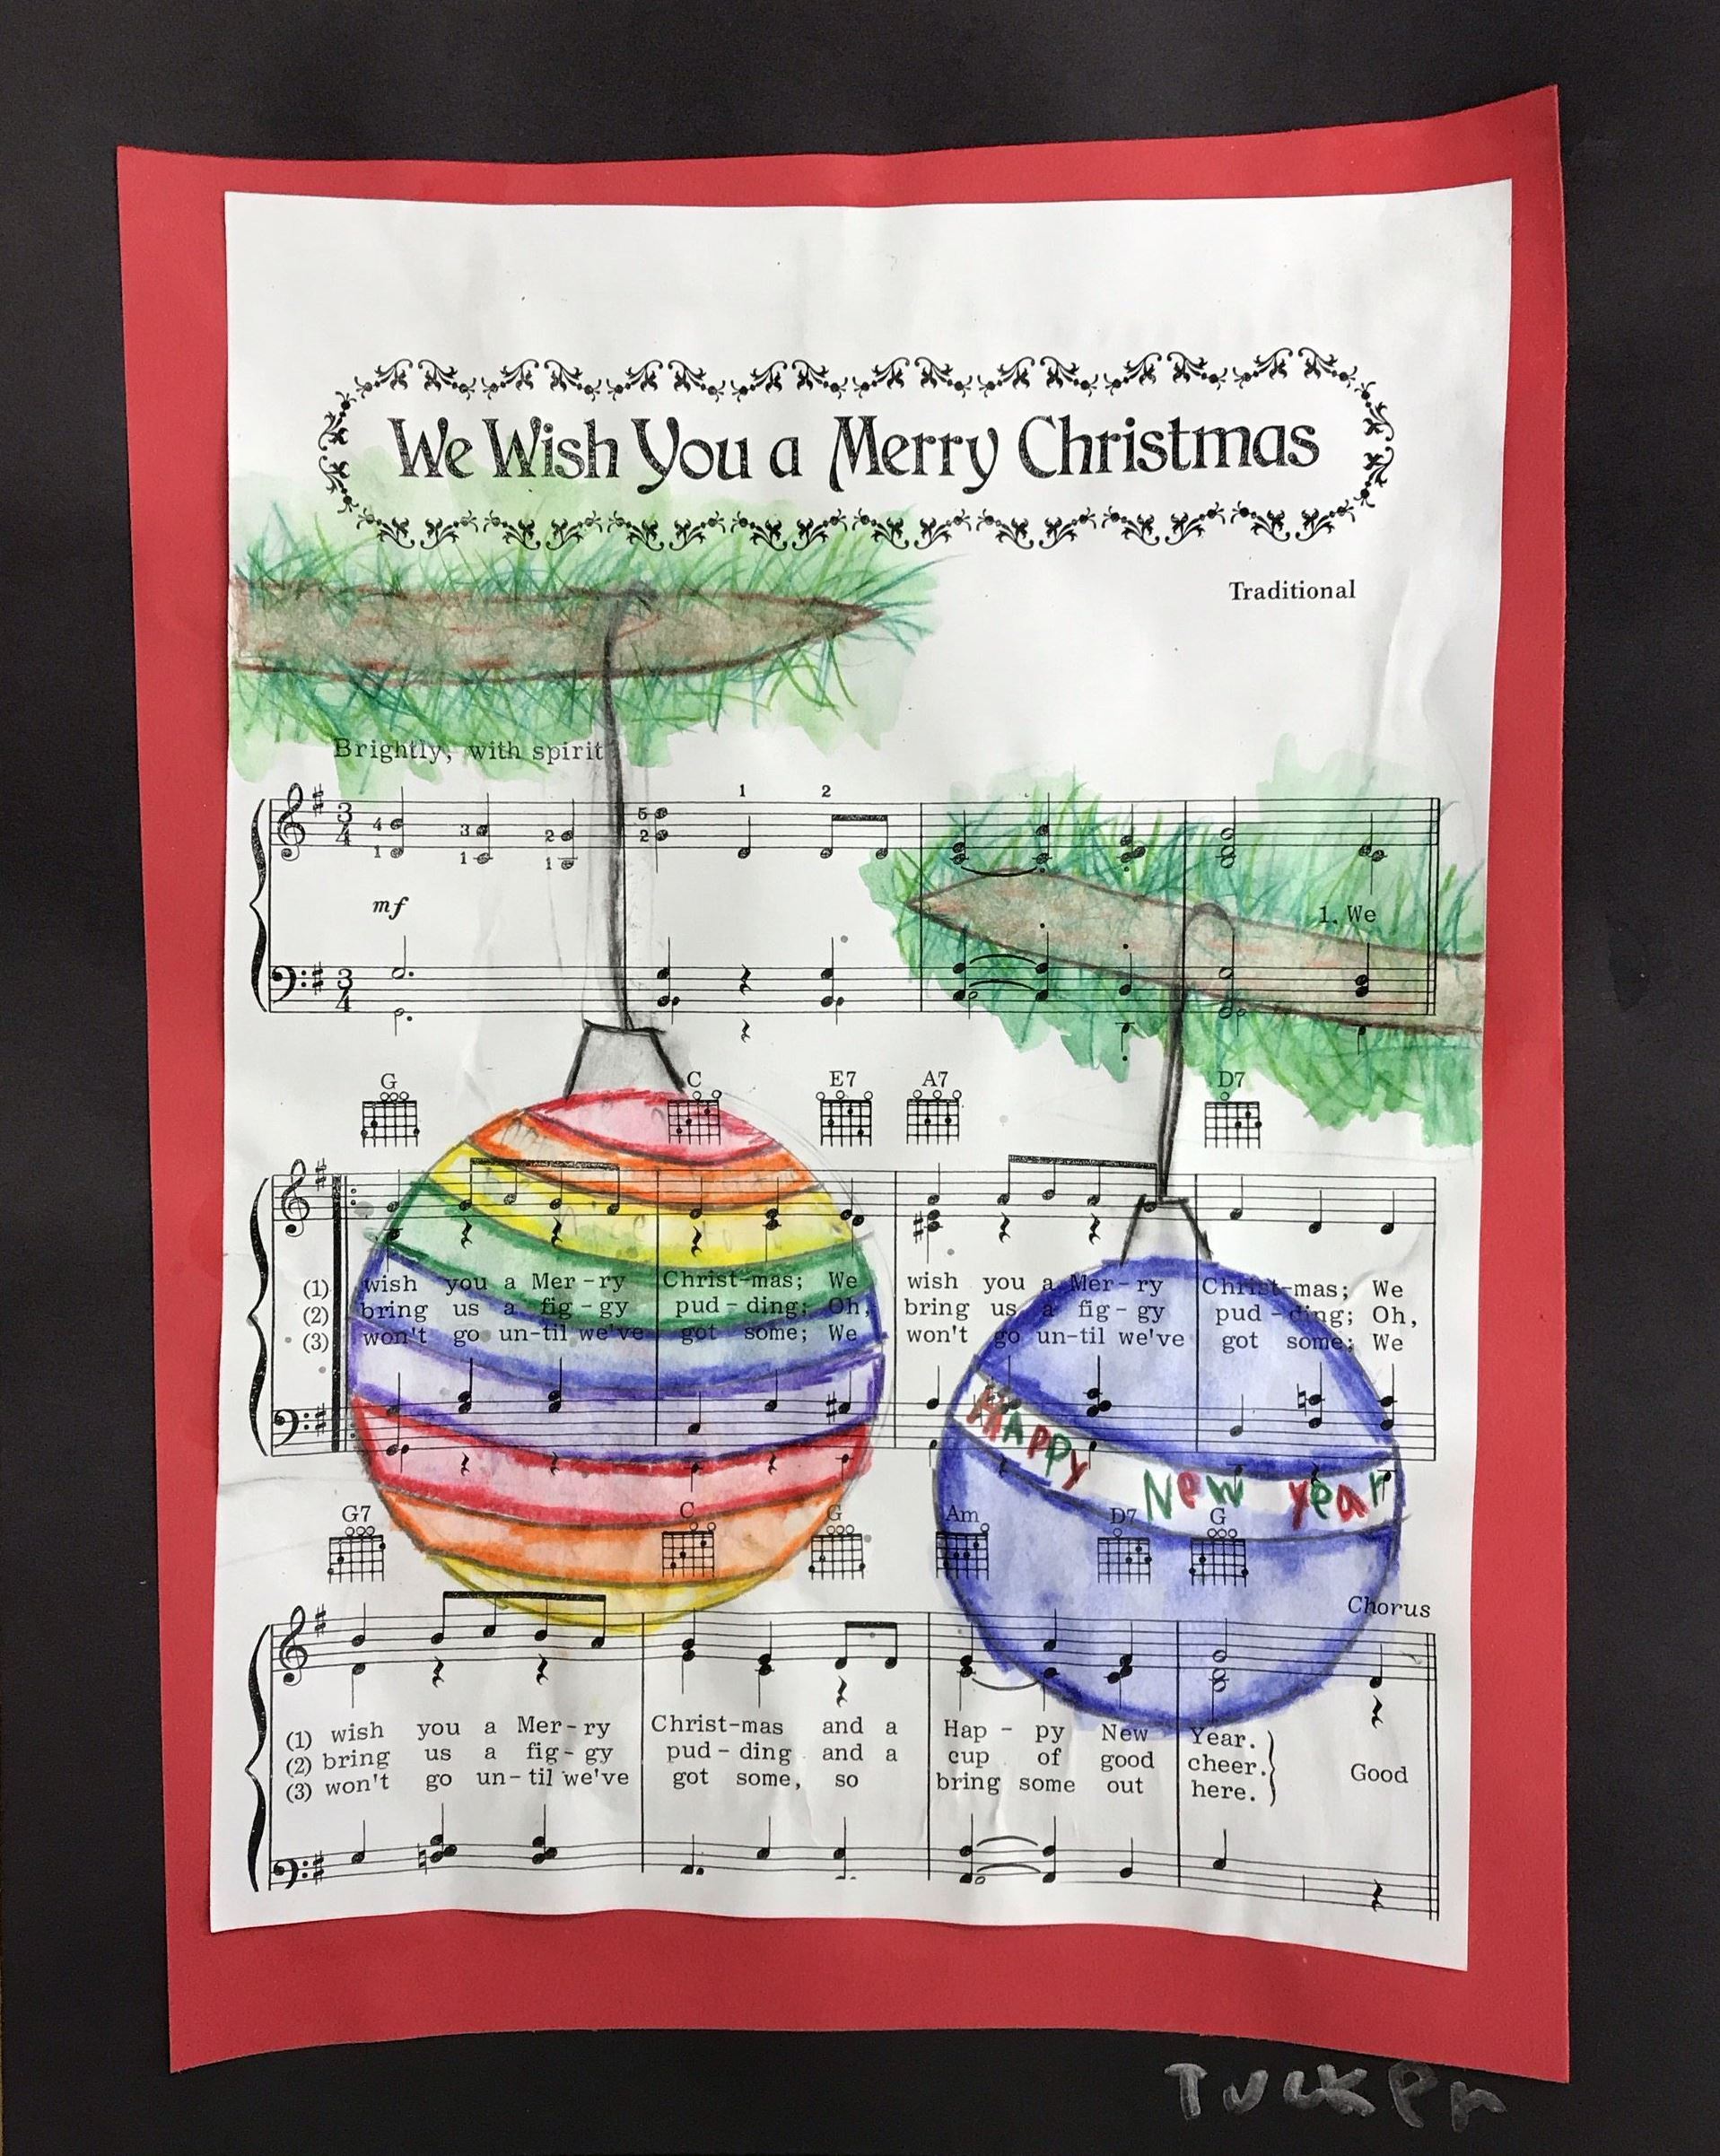 We Wish You a Merry Christmas
Traditional
Brightly, with spirit
1 2
4 3 2 5
1 1 1 2
3 4
mf
1. We
3 4
G C E7 A7 D7
(1) wish you a Mer-ry Christ-mas; We wish you a Mer-ry Christ-mas; We
(2) bring us a fig-gy pud-ding; Oh, bring us a fig-gy pud-ding; Oh,
(3) won't go un-til we've got some; We won't go un-til we've got some; We
HAPPY New year
G7 C G Am D7 G
Chorus
(1) wish you a Mer-ry Christ-mas and a Hap-py New Year.
(2) bring us a fig-gy pud-ding and a cup of good cheer.
(3) won't go un-til we've got some, so bring some out here.
Good
TUCKER